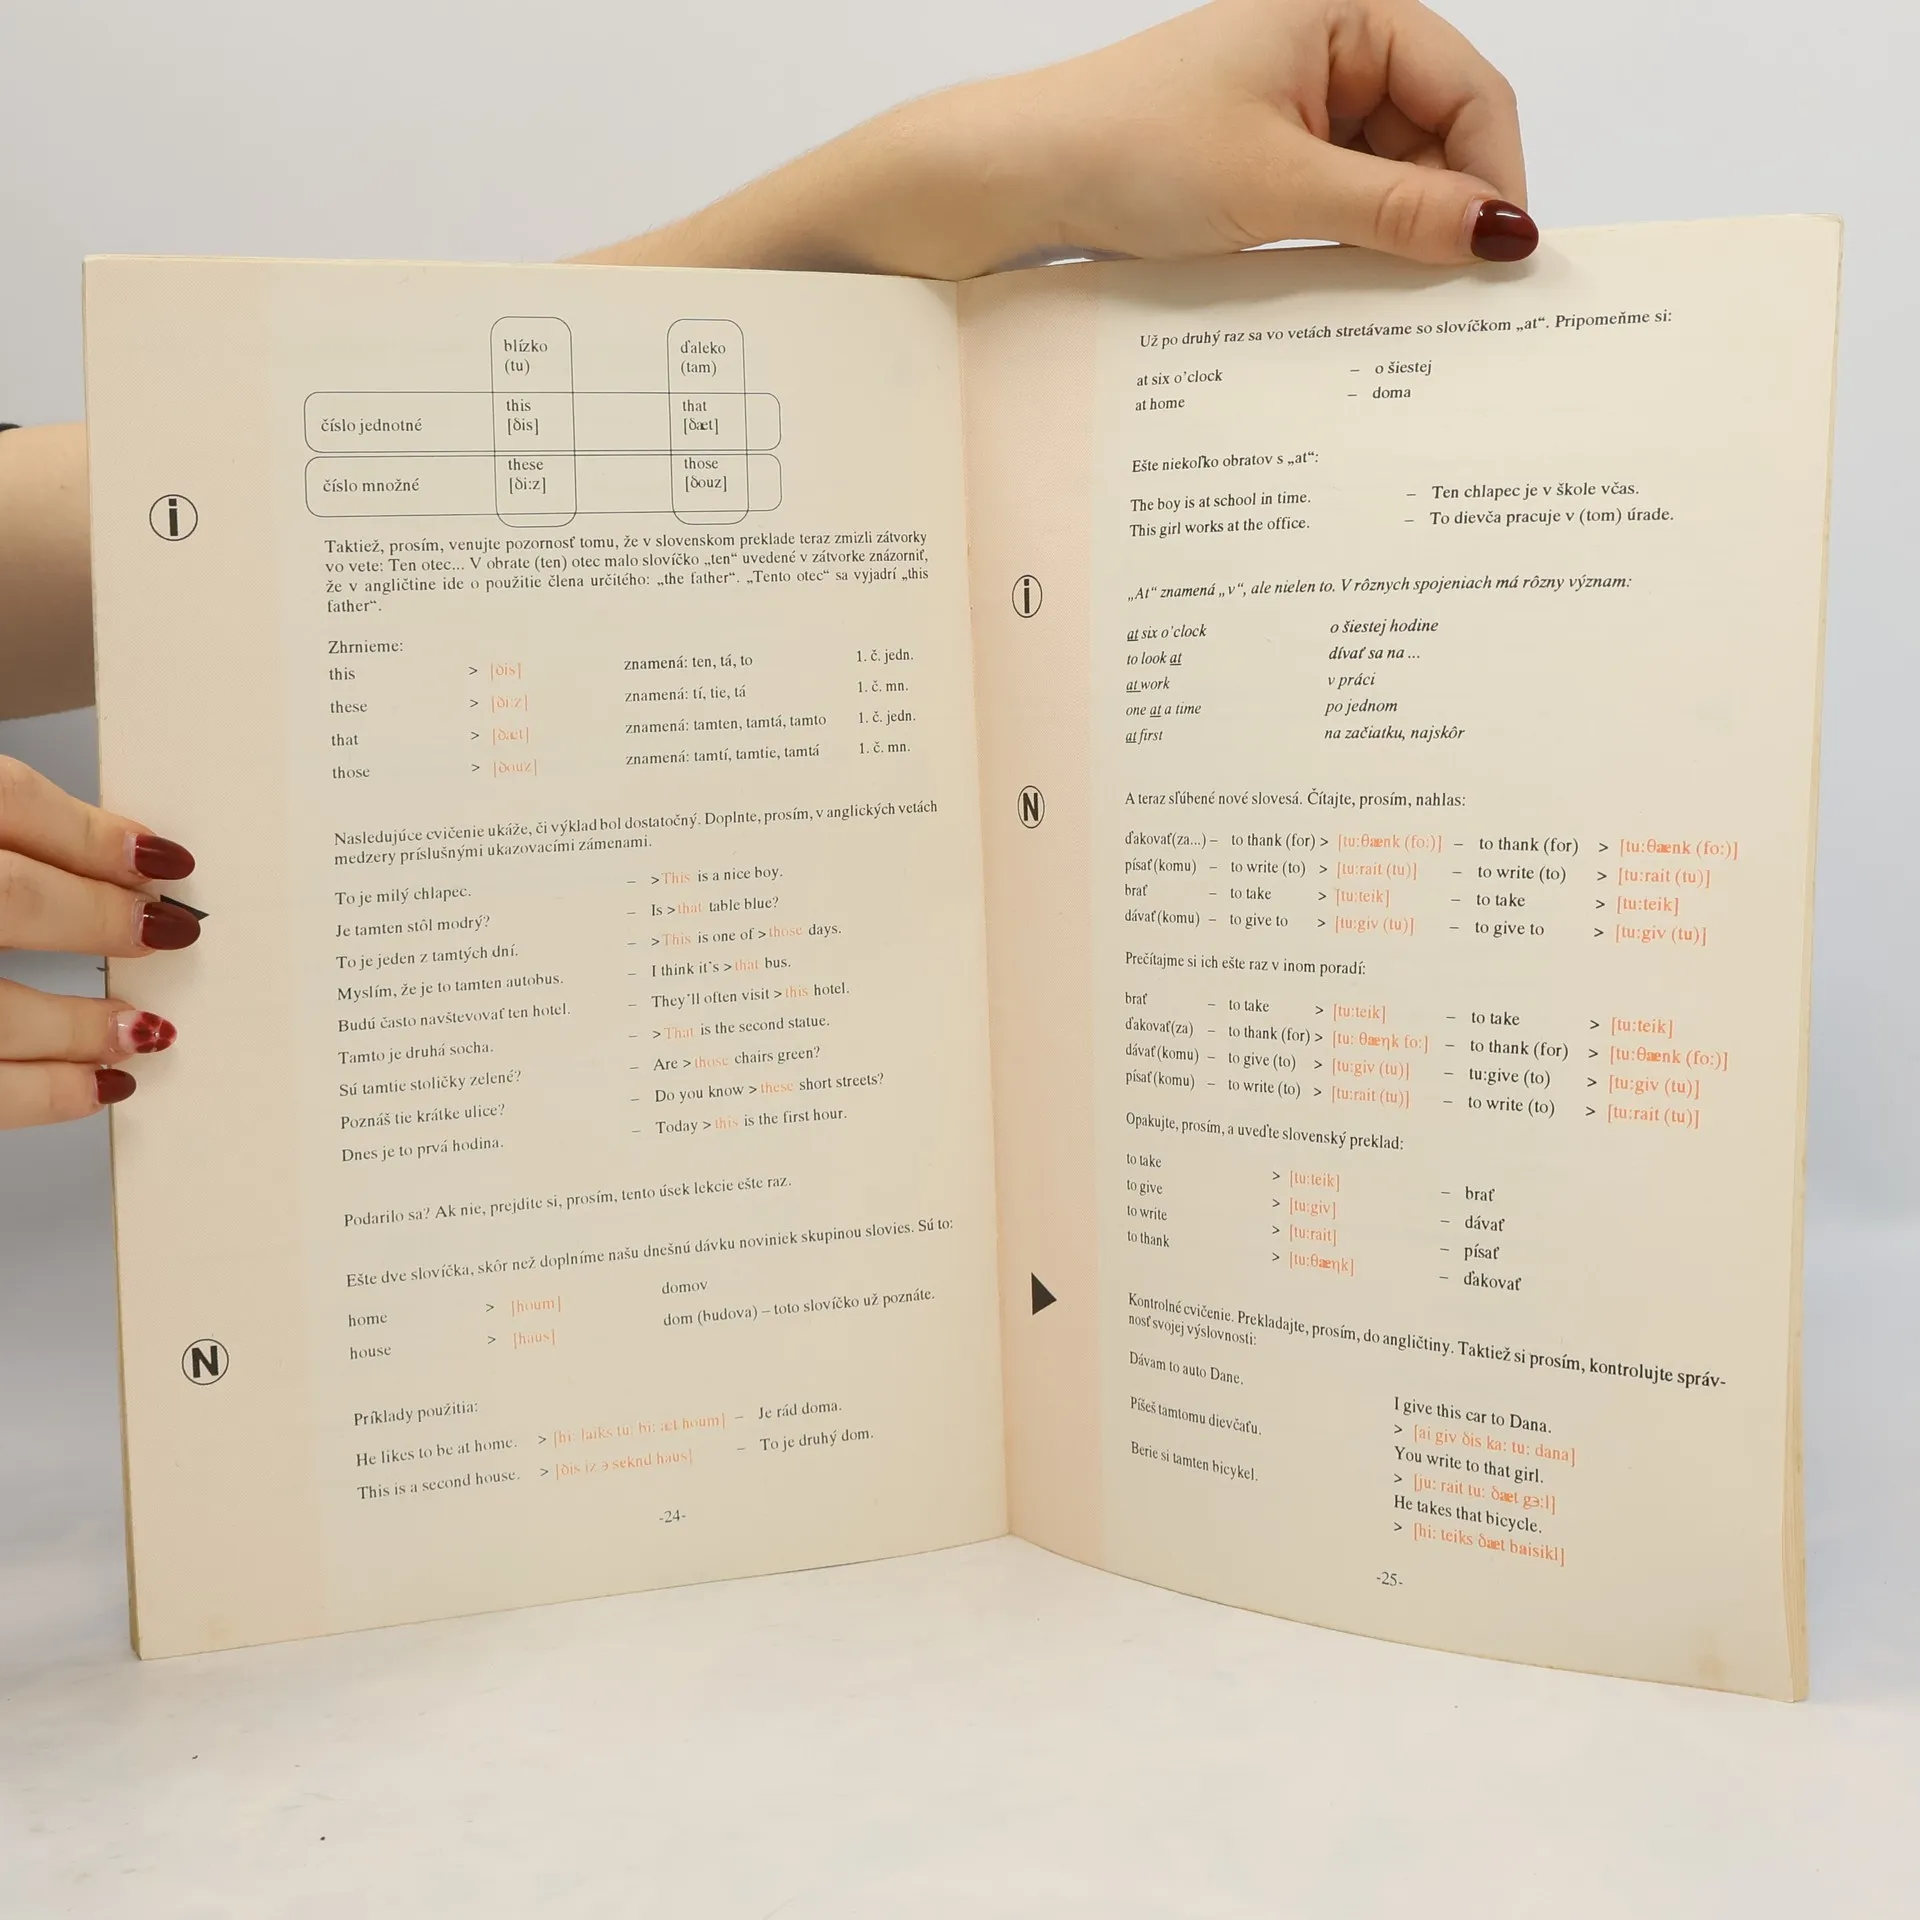 blízko ďaleko
(tu) (tam)
this that
číslo jednotné [ðis] [ðæt]
these those
číslo množné [ði:z] [ðouz]
i
Taktiež, prosím, venujte pozornosť tomu, že v slovenskom preklade teraz zmizli zátvorky
vo vete: Ten otec... V obrate (ten) otec malo slovíčko „ten“ uvedené v zátvorke znázorniť,
že v angličtine ide o použitie člena určitého: „the father“. „Tento otec“ sa vyjadrí „this
father“.
Zhrnieme:
this > [ðis] znamená: ten, tá, to 1. č. jedn.
these > [ði:z] znamená: tí, tie, tá 1. č. mn.
that > [ðæt] znamená: tamten, tamtá, tamto 1. č. jedn.
those > [ðouz] znamená: tamtí, tamtie, tamtá 1. č. mn.
Nasledujúce cvičenie ukáže, či výklad bol dostatočný. Doplnte, prosím, v anglických vetách
medzery príslušnými ukazovacími zámenami.
To je milý chlapec. – >This is a nice boy.
Je tamten stôl modrý? – Is >that table blue?
To je jeden z tamtých dní. – >This is one of >those days.
Myslím, že je to tamten autobus. – I think it's >that bus.
Budú často navštevovať ten hotel. – They'll often visit >this hotel.
Tamto je druhá socha. – >That is the second statue.
Sú tamtie stoličky zelené? – Are >those chairs green?
Poznáš tie krátke ulice? – Do you know >these short streets?
Dnes je to prvá hodina. – Today >this is the first hour.
Podarilo sa? Ak nie, prejdite si, prosím, tento úsek lekcie ešte raz.
Ešte dve slovíčka, skôr než doplníme našu dnešnú dávku noviniek skupinou slovies. Sú to:
home > [houm] domov
house > [haus] dom (budova) – toto slovíčko už poznáte.
N
Príklady použitia:
He likes to be at home. > [hi: laiks tu: bi: æt houm] – Je rád doma.
This is a second house. > [ðis iz ə seknd haus] – To je druhý dom.
-24-
Už po druhý raz sa vo vetách stretávame so slovíčkom „at“. Pripomeňme si:
at six o'clock – o šiestej
at home – doma
Ešte niekoľko obratov s „at“:
The boy is at school in time. – Ten chlapec je v škole včas.
This girl works at the office. – To dievča pracuje v (tom) úrade.
i
„At“ znamená „v“, ale nielen to. V rôznych spojeniach má rôzny význam:
at six o'clock o šiestej hodine
to look at dívať sa na ...
at work v práci
one at a time po jednom
at first na začiatku, najskôr
N
A teraz sľúbené nové slovesá. Čítajte, prosím, nahlas:
ďakovať(za...) – to thank (for) > [tu:θænk (fo:)] – to thank (for) > [tu:θænk (fo:)]
písať(komu) – to write (to) > [tu:rait (tu)] – to write (to) > [tu:rait (tu)]
brať – to take > [tu:teik] – to take > [tu:teik]
dávať(komu) – to give to > [tu:giv (tu)] – to give to > [tu:giv (tu)]
Prečítajme si ich ešte raz v inom poradí:
brať – to take > [tu:teik] – to take > [tu:teik]
ďakovať(za) – to thank (for) > [tu: θæηk fo:] – to thank (for) > [tu:θænk (fo:)]
dávať(komu) – to give (to) > [tu:giv (tu)] – tu:give (to) > [tu:giv (tu)]
písať(komu) – to write (to) > [tu:rait (tu)] – to write (to) > [tu:rait (tu)]
Opakujte, prosím, a uveďte slovenský preklad:
to take > [tu:teik] – brať
to give > [tu:giv] – dávať
to write > [tu:rait] – písať
to thank > [tu:θæηk] – ďakovať
Kontrolné cvičenie. Prekladajte, prosím, do angličtiny. Taktiež si prosím, kontrolujte správ-
nosť svojej výslovnosti:
Dávam to auto Dane. I give this car to Dana.
> [ai giv ðis ka: tu: dana]
Píšeš tamtomu dievčaťu. You write to that girl.
> [ju: rait tu: ðæt gə:l]
Berie si tamten bicykel. He takes that bicycle.
> [hi: teiks ðæt baisikl]
-25-